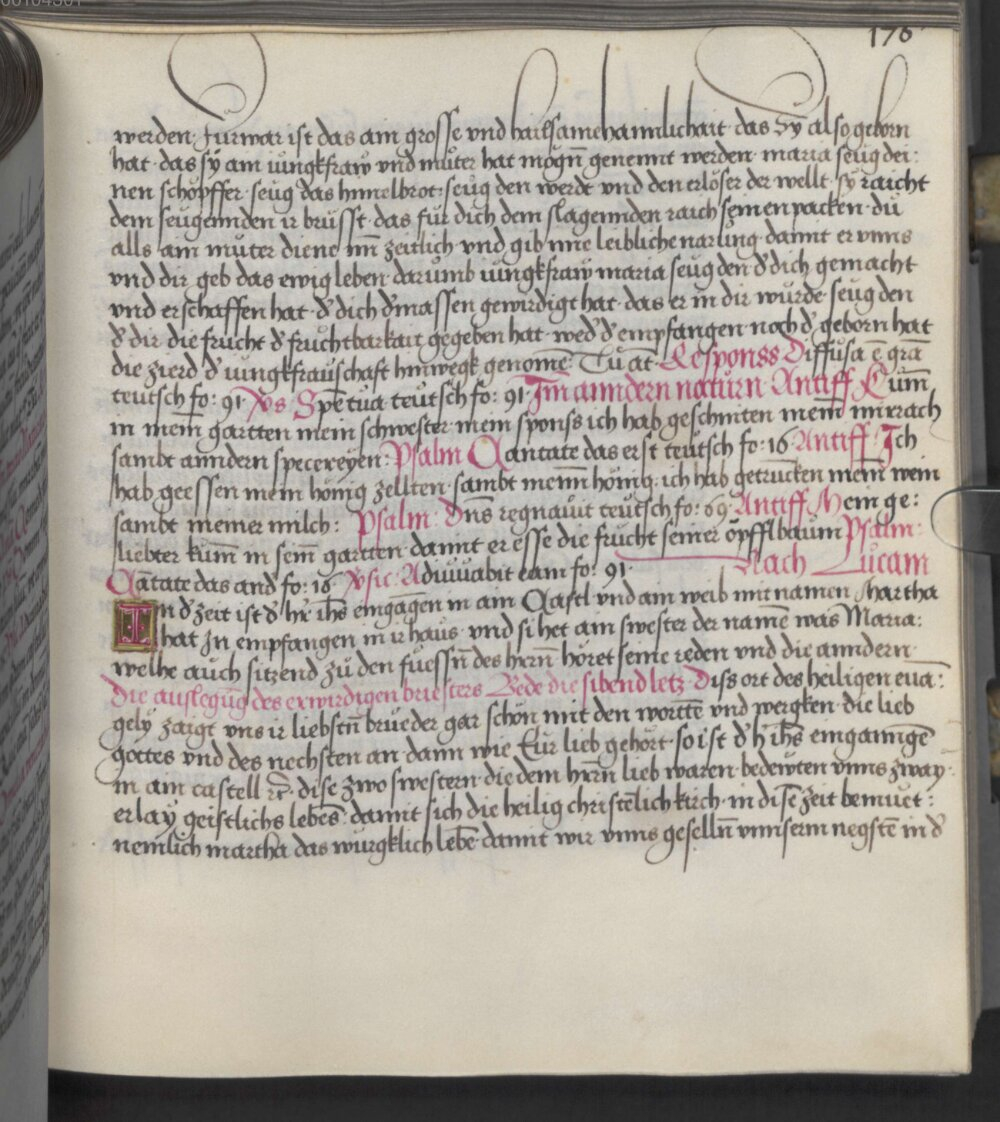 176
werden · furwar ist das ain grosse vnd hailsame haimlichait · das Sÿ also geborn
hat · das sÿ ain iungkfraw vnd muter hat mögn̄ genennt werden · maria seug dei :
nen schöpffer · seug das himelbrot · seug den werde vnd den erlöser der wellt · sÿ raicht
dem seugennden ir brüsst · das für dich dem slagennden raich seinen packen · du
alls ain muter diene im̄ zeitlich · vnd gib ime leibliche narung · damit er vnns
vnd dir geb das ewig leben · darumb iungkfraw maria seug den d̕ dich gemacht
vnd erschaffen hat · d̕ dich d̕massen gewirdigt hat · das er in dir wurde · seug den
d̕ dir die frucht d̕ fruchtbarkait gegeben hat · wed̕ d̕ empfangen noch d̕ geborn hat
die zierd d̕ iungkfrauschaft hinwegk genomē · Tu āt · Responss Diffusa ē grā
teutsch fo : 91 · V̕s Spē tua teutsch fo : 91 · Im anndern naturn Antiff Kum̄
in mein̄ gartten mein schwester mein sponss ich hab geschniten mein̄ mirrach
sambt anndern specereyen · Psalm Cantate das erst teutsch fo : 16 Antiff · Ich
hab geessen mein hönig zellten · sambt meinn̄ hönig · ich hab getruncken mein̄ wein
sambt meiner milch : Psalm · Dn̄s regnauit teutsch fo : 69 · Antiff Mein ge :
liebter kum̄ in sein̄ gartten · damit er esse die frucht seiner öpfflbaum Psalm
Cātate das and̕ fo : 16 V̕sic · Adiuuabit eam fo : 91 · Nach Lucam
In d̕ zeit ist d̕ hr̄ ih̄s eingāgen in ain Castl · vnd ain weib mit namen Martha
hat In empfangen in ir haus · vnd si het ain swester der namē was Maria :
welhe auch sitzend zu den füessn̄ des hern̄ höret seine reden vnd die anndern
Die auslegūg des erwirdigen briesters Bede die sibend letz · Diss ort des heiligen euā :
gely zaigt vns ir liebstn̄ brueder gar schön mit den wortē vnd wergken · die lieb
gottes vnd des nechsten an · dann wie Eur lieb gehört · so ist d̕ h̄ ih̄s eingangē
in ain castell rc̄ · dise zwo swestern · die dem hern̄ lieb waren · bedewten vnns zway ·
erlay geistlichs lebēs · damit sich die heilig christelich kirch · in disē zeit bemuet :
nemlich martha das wurgklich lebē · damit wir vnns geselln̄ vnnserm negstē in d̕